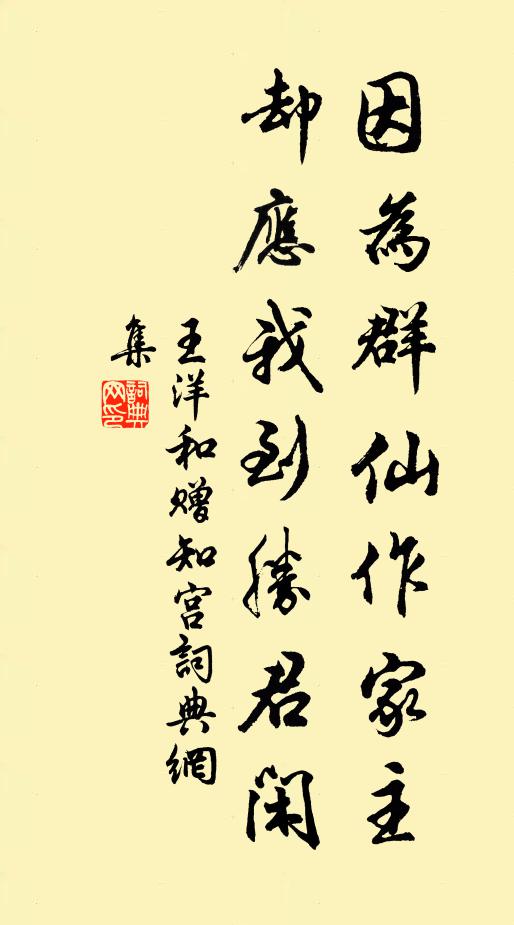 因為群仙作家主
却應我到勝君閑
王洋和贈知宮詞典網
集
詞典網印